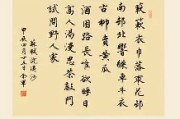 簌簌衣巾落棗花邨
南邨北響繰車牛衣
古柳賣黄瓜
酒困路長惟欲睡日
高人渴漫思茶敲門
試問野人家
蘇軾浣溪沙